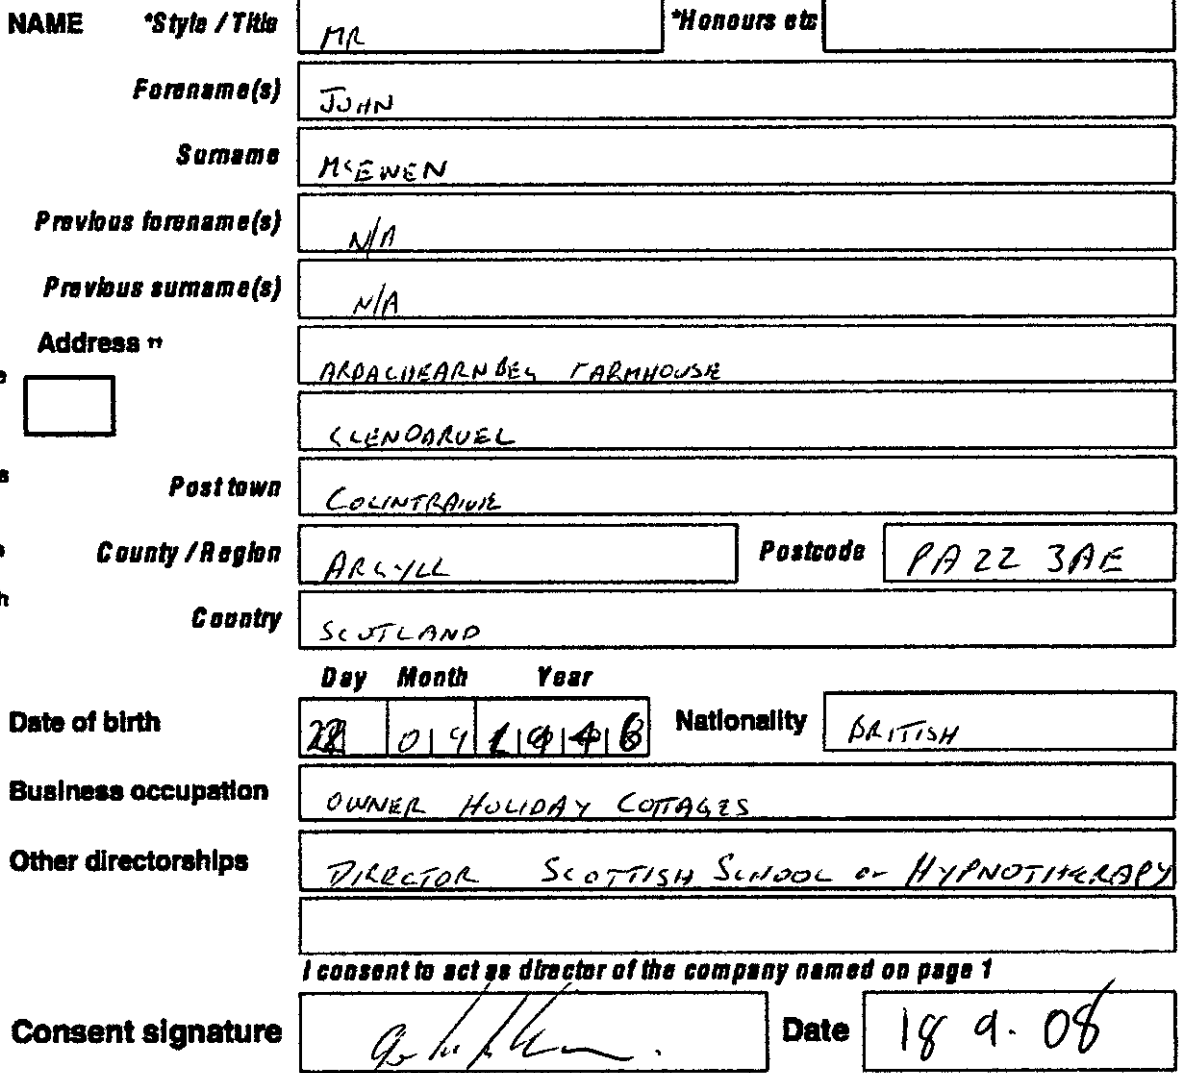 NAME *Style / Title MR *Honours etc
Forename(s) JOHN
Surname McEWEN
Previous forename(s) N/A
Previous surname(s) N/A
Address ††
ARDACHEARNBEG FARMHOUSE
GLENDARUEL
Post town COLINTRAIVE
County / Region ARGYLL Postcode PA22 3AE
Country SCOTLAND
Day Month Year
Date of birth 09 Nationality BRITISH
Business occupation OWNER HOLIDAY COTTAGES
Other directorships DIRECTOR SCOTTISH SCHOOL OF HYPNOTHERAPY
I consent to act as director of the company named on page 1
Consent signature Date 18 9. 08